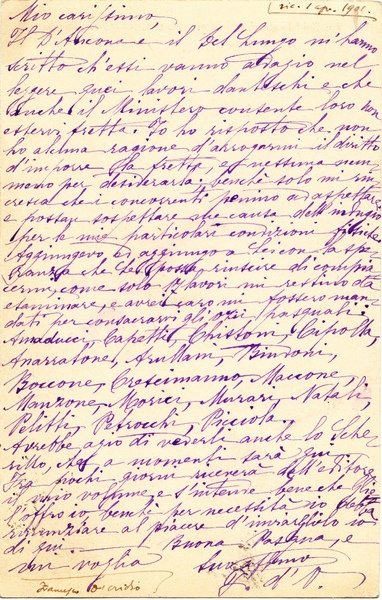 ric. 1 apr. 1901.
Mio carissimo,
Il D'Ancona e il Del Lungo m'hanno
scritto ch'essi vanno adagio nel
leggere quei lavori danteschi e che
anche il Ministero consente loro non
esservi fretta. Io ho risposto che non
ho alcuna ragione d'arrogarmi il diritto
d'imporre la fretta, e nessuna nem-
meno per desiderarla: benchè solo mi rin-
cresca che i concorrenti penino ad aspettare
e possano sospettare che causa dell'indugio
per le mie particolari condizioni fisiche
Aggiungevo, ed aggiungo a Lei con la spe-
ranza che Le possa riuscire di compia-
cermi, come solo 17 lavori mi restino da
esaminare, e avrei caro mi fossero man-
dati per consacrarvi gli ozi pasquali:
Amaducci, Capetti, Chistoni, Cipolla,
Anarratone, Arullani, Bindoni,
Boccone, Crescimanno, Maccone,
Manzone, Morici, Murari, Natali,
Pelitti, Petrocchi, Picciola.
Avrebbe agio di vederli anche lo Sche-
rillo, che a momenti sarà qui.
Tra pochi giorni riceverà dall'editore
il vario volume, e s'intende bene che
l'offro io, benchè per necessità io debba
rinunziare al piacere d'inviarglielo io
di qui. Buona Pasqua, e
mi voglia
Suo aff.mo
F. d'O.
Francesco